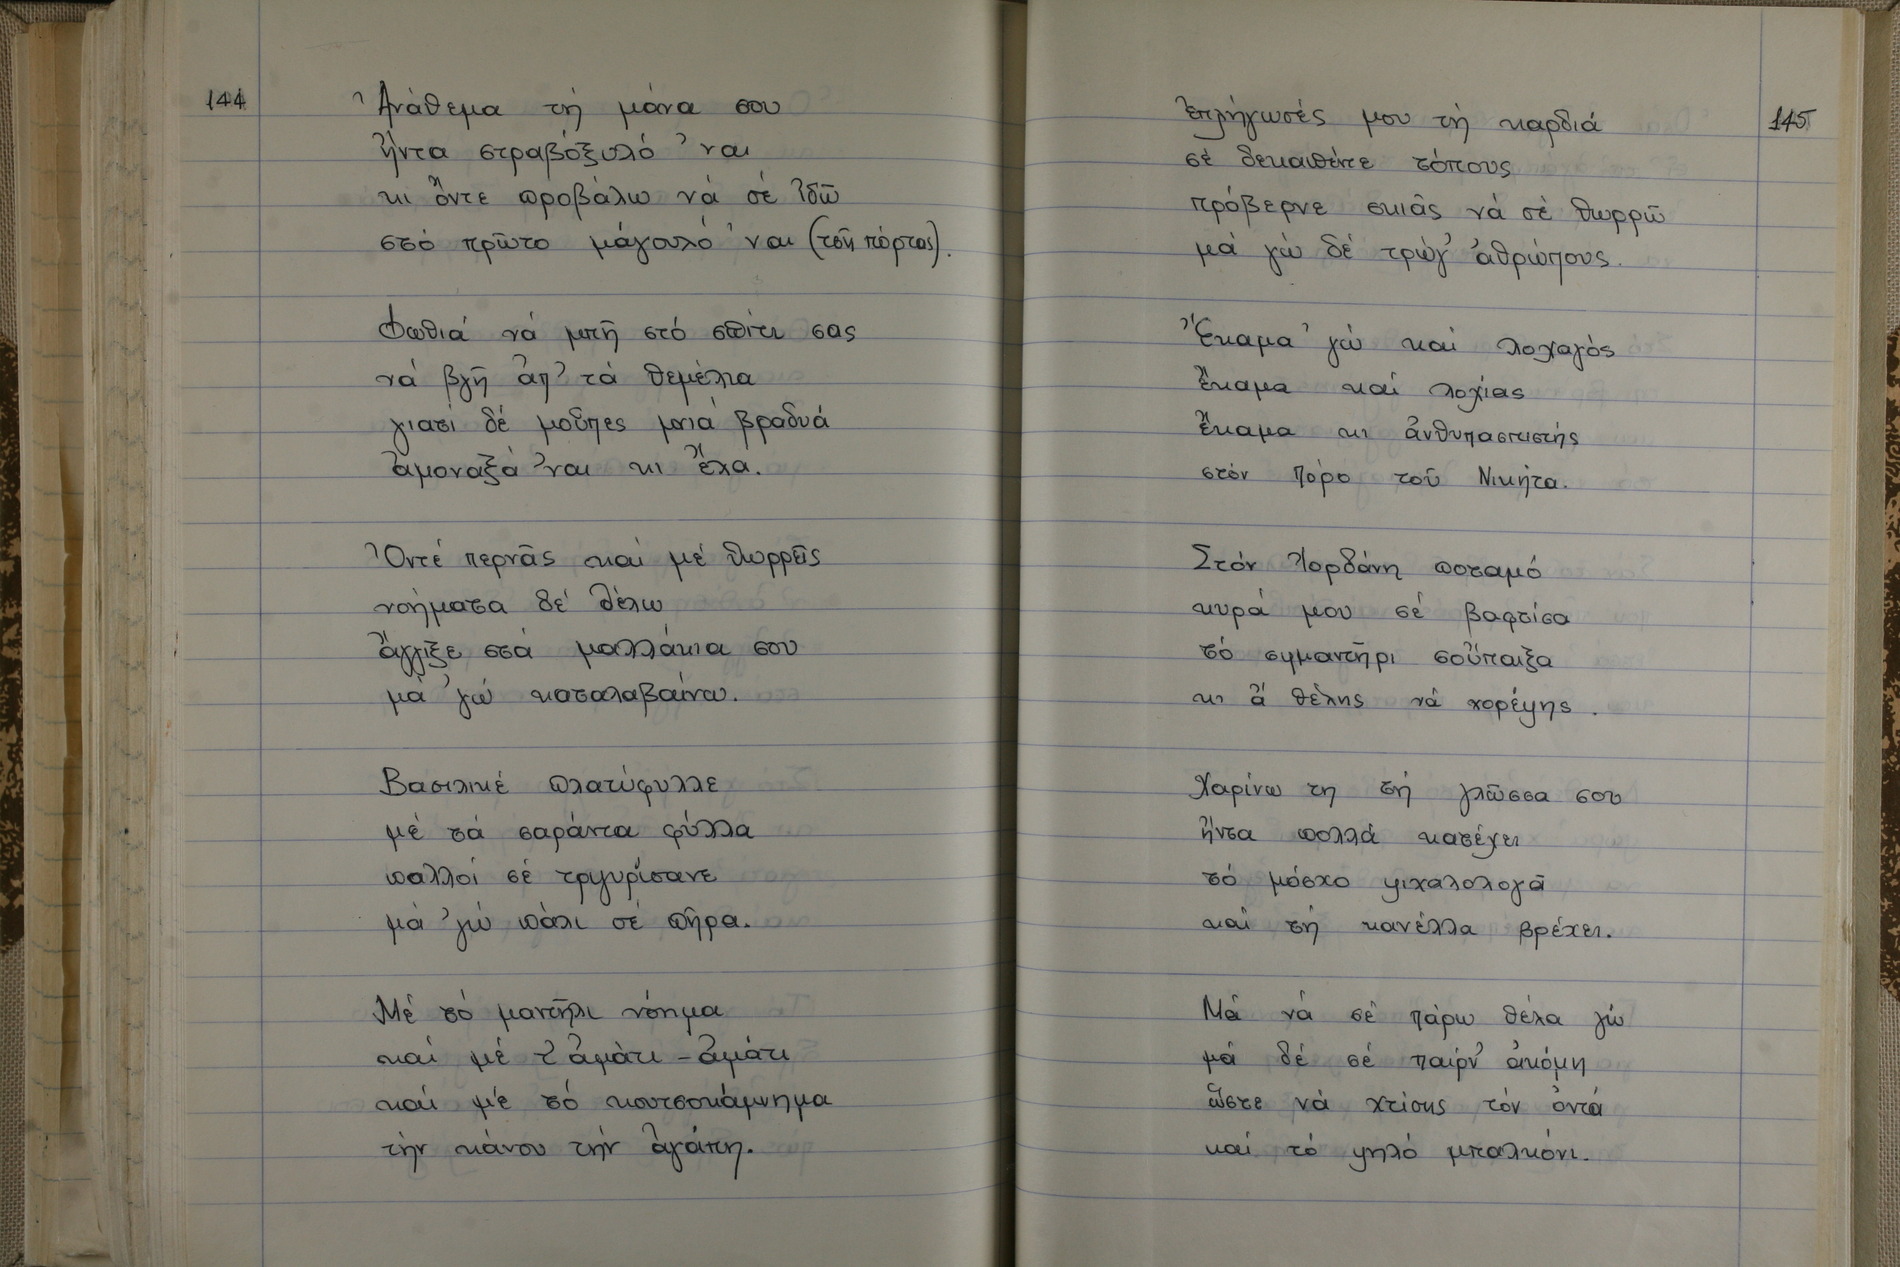 144
Ἀνάθεμα τή μάνα σου
ἦντα στραβόξυλό 'ναι
κι ὄντε προβάλω νά σέ ἰδῶ
στό πρῶτο μάγουλό 'ναι (τσῆ πόρτας).
Φωθιά νά μπῆ στό σπίτι σας
νά βγῆ ἀπ' τά θεμέλια
γιατί δέ μοὖπες μιά βραδυά
ἀμοναξά 'ναι κι ἔλα.
Ὀντέ περνᾶς καί μέ θωρρεῖς
νοήματα δέ θέλω
ἄγγιξε στά μαλλάκια σου
μά 'γώ καταλαβαίνω.
Βασιλικέ πλατύφυλλε
μέ τά σαράντα φύλλα
πολλοί σέ τργυρίσανε
μά 'γώ πάλι σέ πῆρα.
Μέ τό μαντῆλι νόημα
καί μέ τ' ἀμάτι - ἀμάτι
καί μέ τό κουτσοκάμνημα
τήν κάνου τήν ἀγάπη.
145
Ἐπλήγωσές μου τή καρδιά
σέ δεκαπέντε τόπους
πρόβερνε σκιᾶς νά σέ θωρρῶ
μά γώ δέ τρώγ' ἀθρώπους.
Ἔκαμα 'γώ καί λοχαγός
ἔκαμα καί λοχίας
ἔκαμα κι ἀνθυπασπιστής
στόν Πόρο τοῦ Νικήτα.
Στόν Ἰορδάνη ποταμό
κυρά μου σέ βαφτίσα
τό σημαντῆρι σοὔπαιξα
κι ἄ θέλης νά χορέψης.
Χαρίνω τη τή γλῶσσα σου
ἦντα πολλά κατέχει
τό μόσκο ψιχαλολογᾶ
καί τή κανέλλα βρέχει.
Μά νά σέ πάρω θέλα γώ
μά δέ σέ παίρν' ἀκόμη
ὥστε νά χτίσης τόν ὀντά
καί τό ψηλό μπαλκόνι.